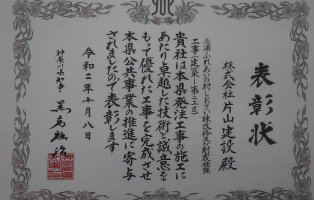 表彰状
株式会社片山建設 殿
三浦ふれあいの村しおさい
工事(建築)(第
貴社は本県発注工事の施工に
あたり卓越した技術と誠意を
もって優れた工事を完成させ
本県公共事業の推進に寄与
されましたので表彰します
令和二年十月八日
神奈川県知事 黒岩祐治